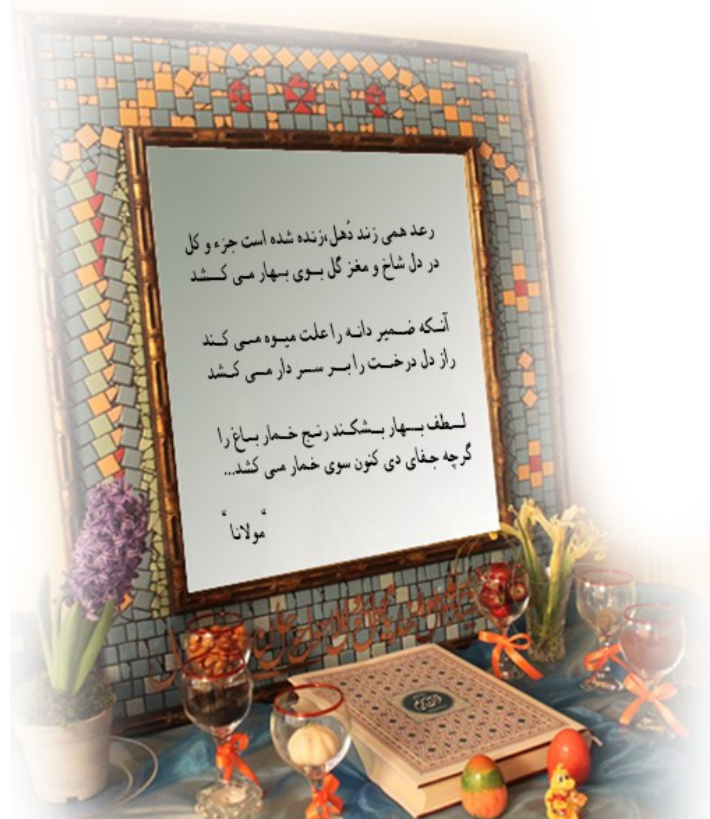 رعد همی زند دُهل،زنده شده است جزء و کل
در دل شاخ و مغز گل بـوی بـهار مـی کـشد
آنـکه ضـمیر دانـه را علت میـوه مـی کند
راز دل درخـت را بـر سـر دار مـی کـشد
لـطف بـهار بـشکـند رنـج خـمار بـاغ را
گرچه جـفای دی کنون سوی خمار می کشد...
“مولانا”